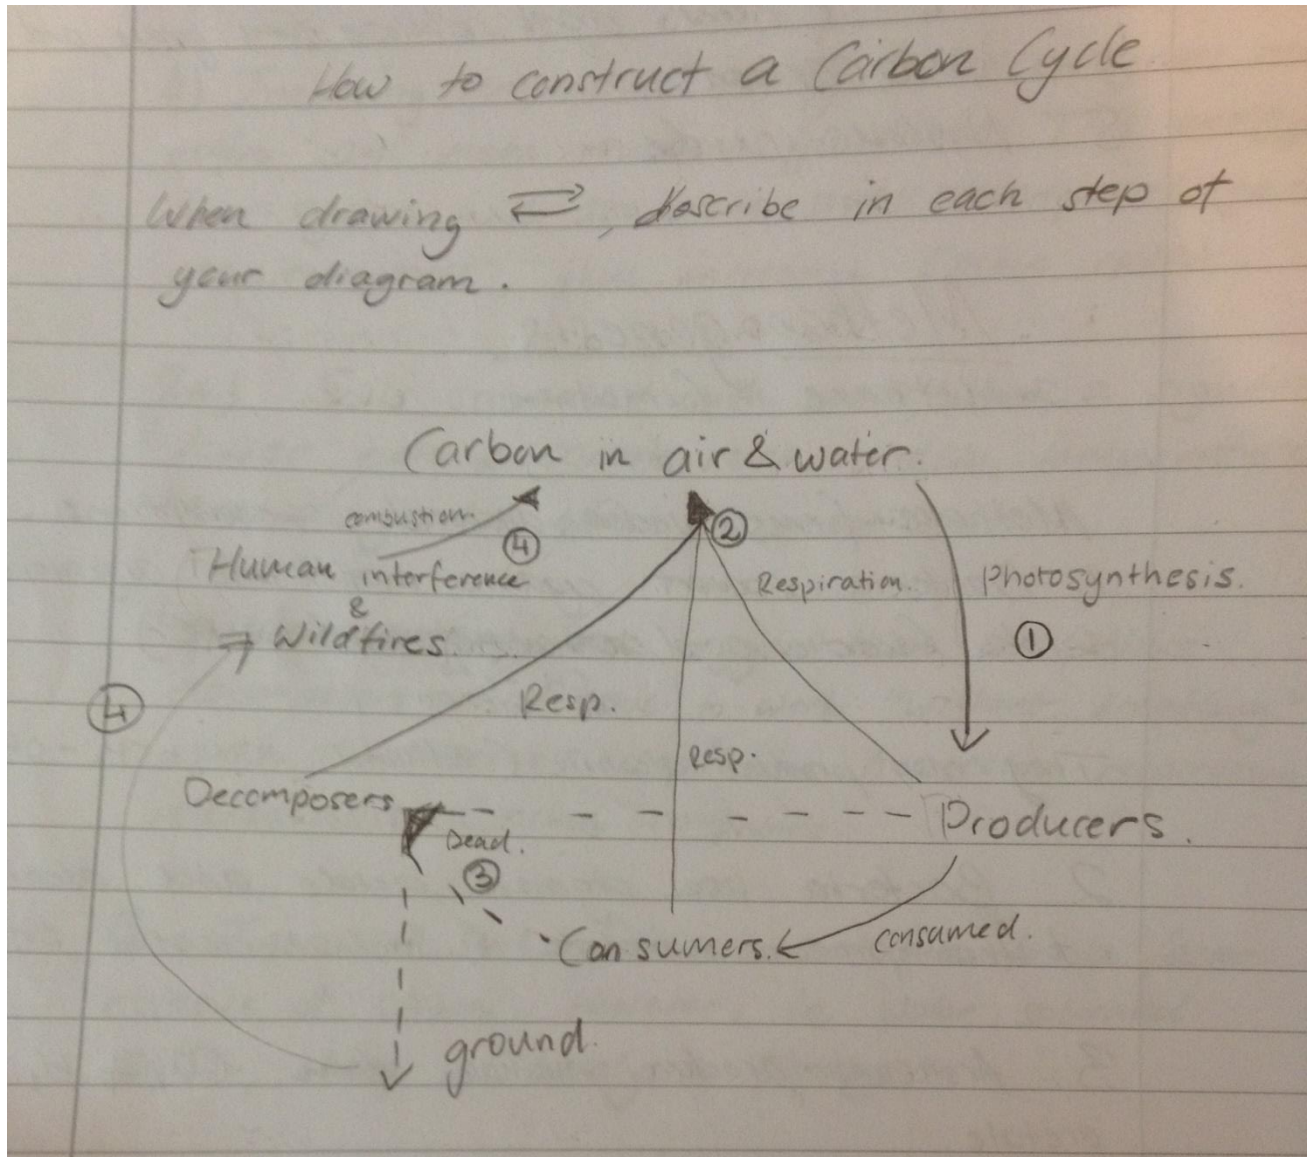 How to construct a Carbon Cycle
When drawing ⇄, describe in each step of
your diagram.
Carbon in air & water.
combustion
④
②
Human interference
&
Wildfires.
Respiration.
Photosynthesis.
①
④
Resp.
Resp.
Decomposers
Dead.
③
Producers.
Consumers.
consumed.
ground.